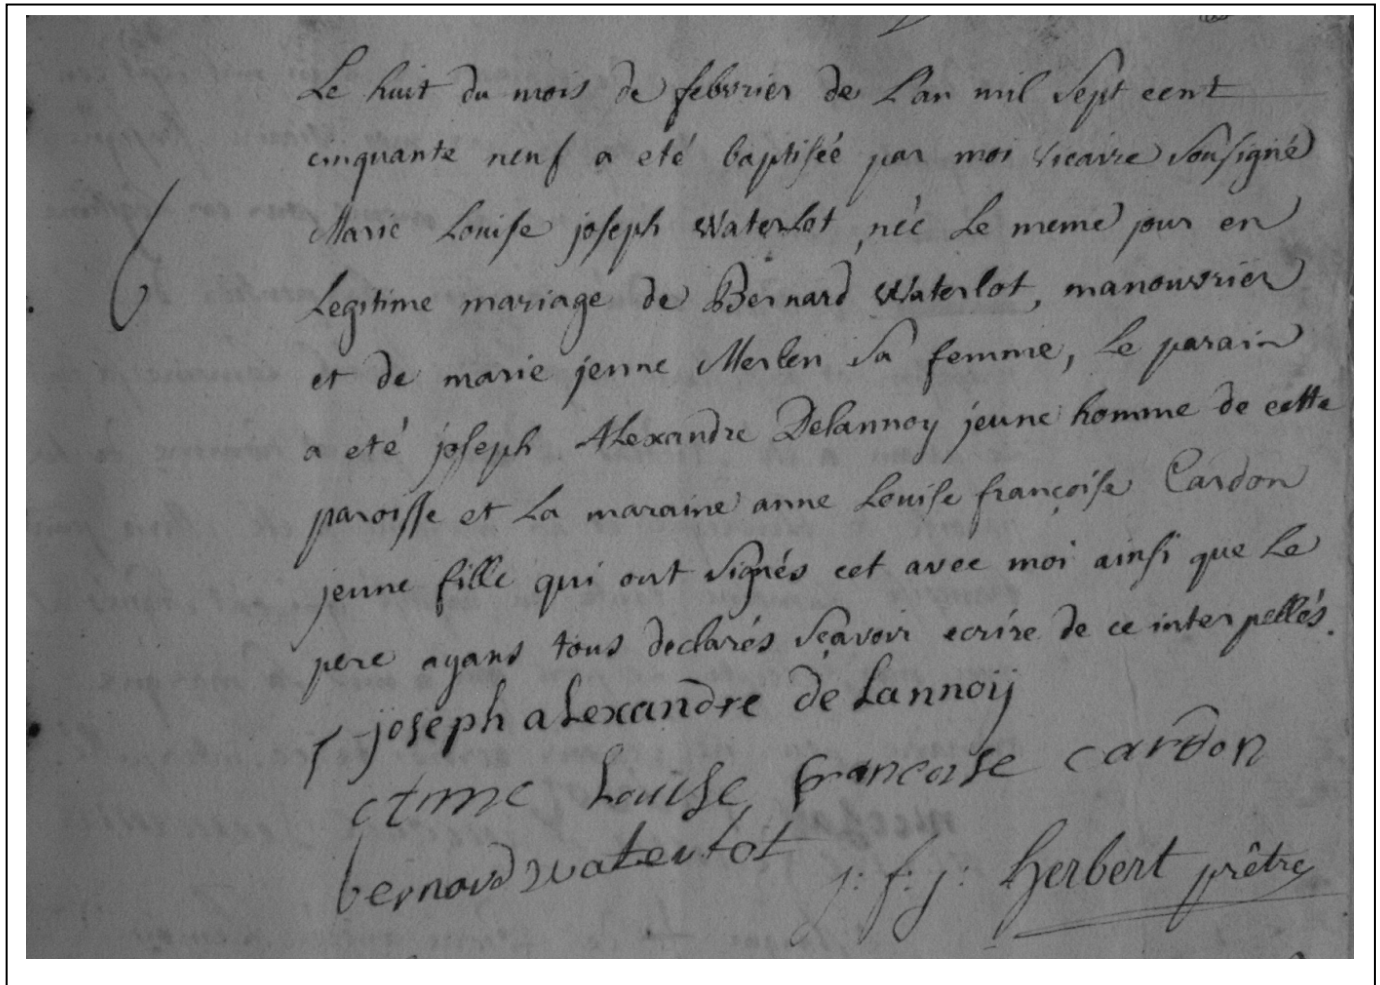 Le huit du mois de febvrier de L'an mil sept cent
cinquante neuf a eté baptisée par moi vicaire sousigné
6
Marie Louise joseph Waterlot, née Le meme jour en
Legitime mariage de Bernard Waterlot, manouvrier
et de marie jenne Merlen sa femme, Le parain
a eté joseph ALexandre Delannoy jeune homme de cette
paroisse et La maraine anne Louise françoise Cardon
jeune fille qui ont signés cet avec moi ainsi que Le
pere ayans tous declarés sçavoir ecrire de ce interpellés.
joseph aLexandre de Lannoij
Anne Louise francoise cardon
bernard waterlot
j: f: j: herbert prêtre